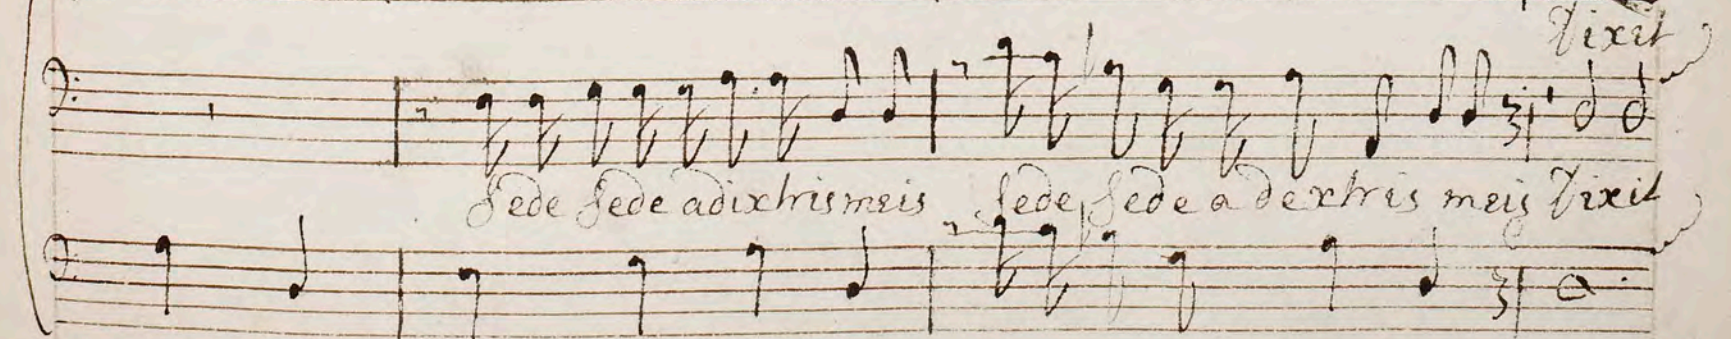 Dixit
Sede Sede adixtris meis Sede Sede a dextris meis Dixit